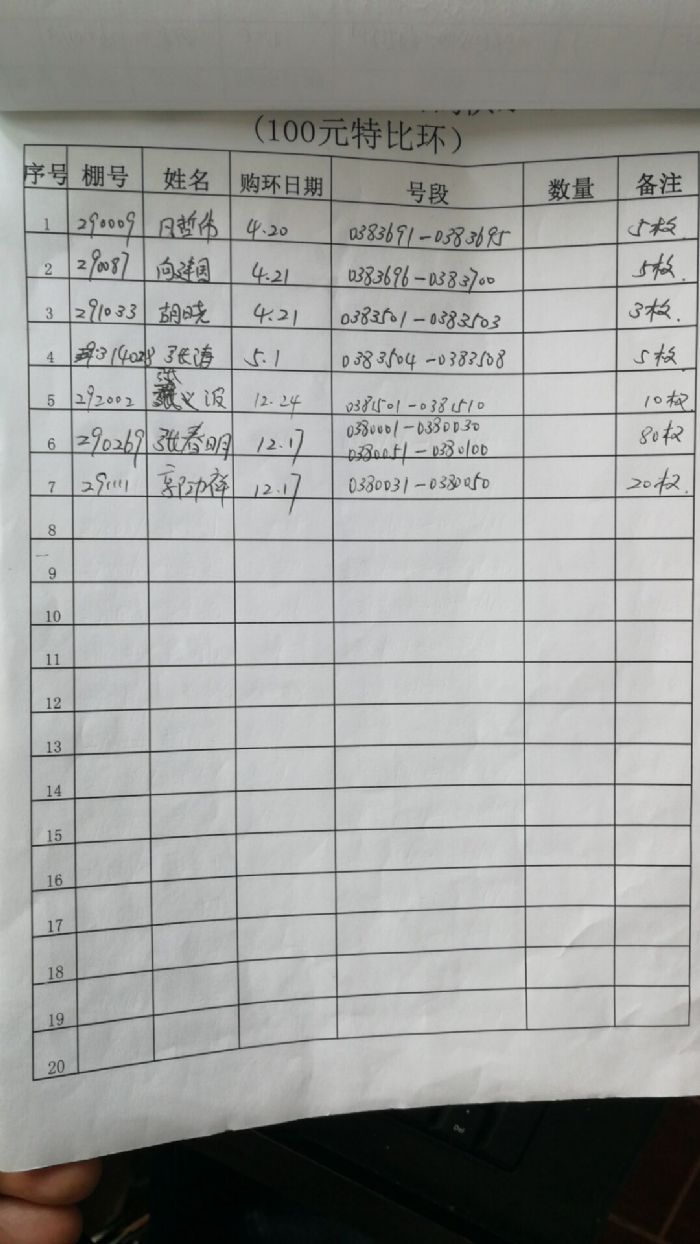 （100元特比环）
序号 棚号 姓名 购环日期 号段 数量 备注
1 290009 闪哲伟 4.20 0383691-0383695 5枚
2 290087 向建国 4.21 0383696-0383700 5枚.
3 291033 胡晓 4.21 0383501-0383503 3枚.
4 314028 张涛 5.1 0383504-0383508 5枚
5 292002 张义波 12.24 0381501-0381510 10枚
6 290269 张春明 12.17 0380001-0380030 80枚
0380051-0380100
7 291111 郭功祥 12.17 0380031-0380050 20枚.
8
9
10
11
12
13
14
15
16
17
18
19
20